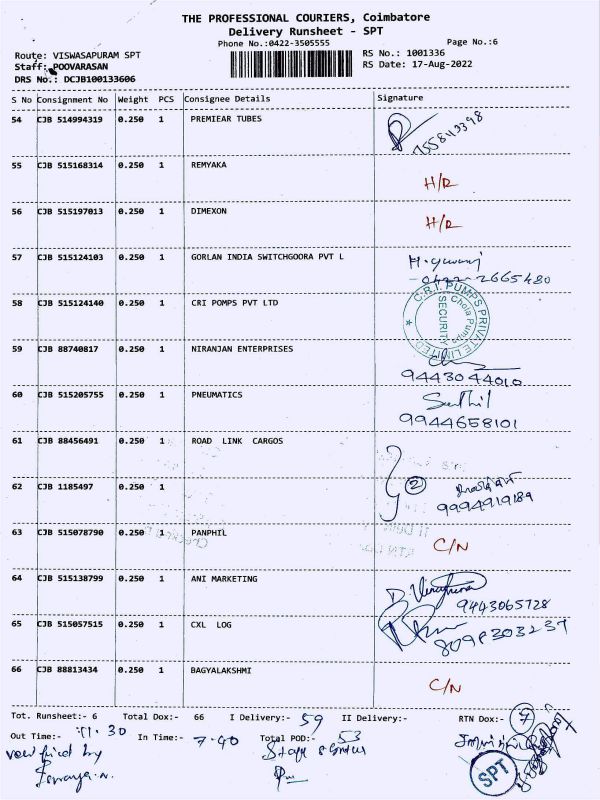 THE PROFESSIONAL COURIERS, Coimbatore
Delivery Runsheet - SPT
Phone No.:0422-3505555
Page No.:6
Route: VISWASAPURAM SPT
RS No.: 1001336
Staff: POOVARASAN
RS Date: 17-Aug-2022
DRS No.: DCJB100133606
S No Consignment No Weight PCS Consignee Details Signature
54 CJB 514994319 0.250 1 PREMIEAR TUBES
55 CJB 515168314 0.250 1 REMYAKA H/R
56 CJB 515197013 0.250 1 DIMEXON H/R
57 CJB 515124103 0.250 1 GORLAN INDIA SWITCHGOORA PVT L
0422-2665480
58 CJB 515124140 0.250 1 CRI POMPS PVT LTD
C.R.I. PUMPS PRIVATE LIMITED
Chola Pumps
SECURITY
59 CJB 88740817 0.250 1 NIRANJAN ENTERPRISES
9443044010
60 CJB 515205755 0.250 1 PNEUMATICS Senthil
9944658101
61 CJB 88456491 0.250 1 ROAD LINK CARGOS
62 CJB 1185497 0.250 1 2
9994919189
63 CJB 515078790 0.250 1 PANPHIL C/N
64 CJB 515138799 0.250 1 ANI MARKETING
9443065728
65 CJB 515057515 0.250 1 CXL LOG
8098303237
66 CJB 88813434 0.250 1 BAGYALAKSHMI C/N
Tot. Runsheet:- 6 Total Dox:- 66 I Delivery:- 59 II Delivery:- RTN Dox:- 7
Out Time:- 11.30 In Time:- 7.40 Total POD:- 53
verified by
SPT